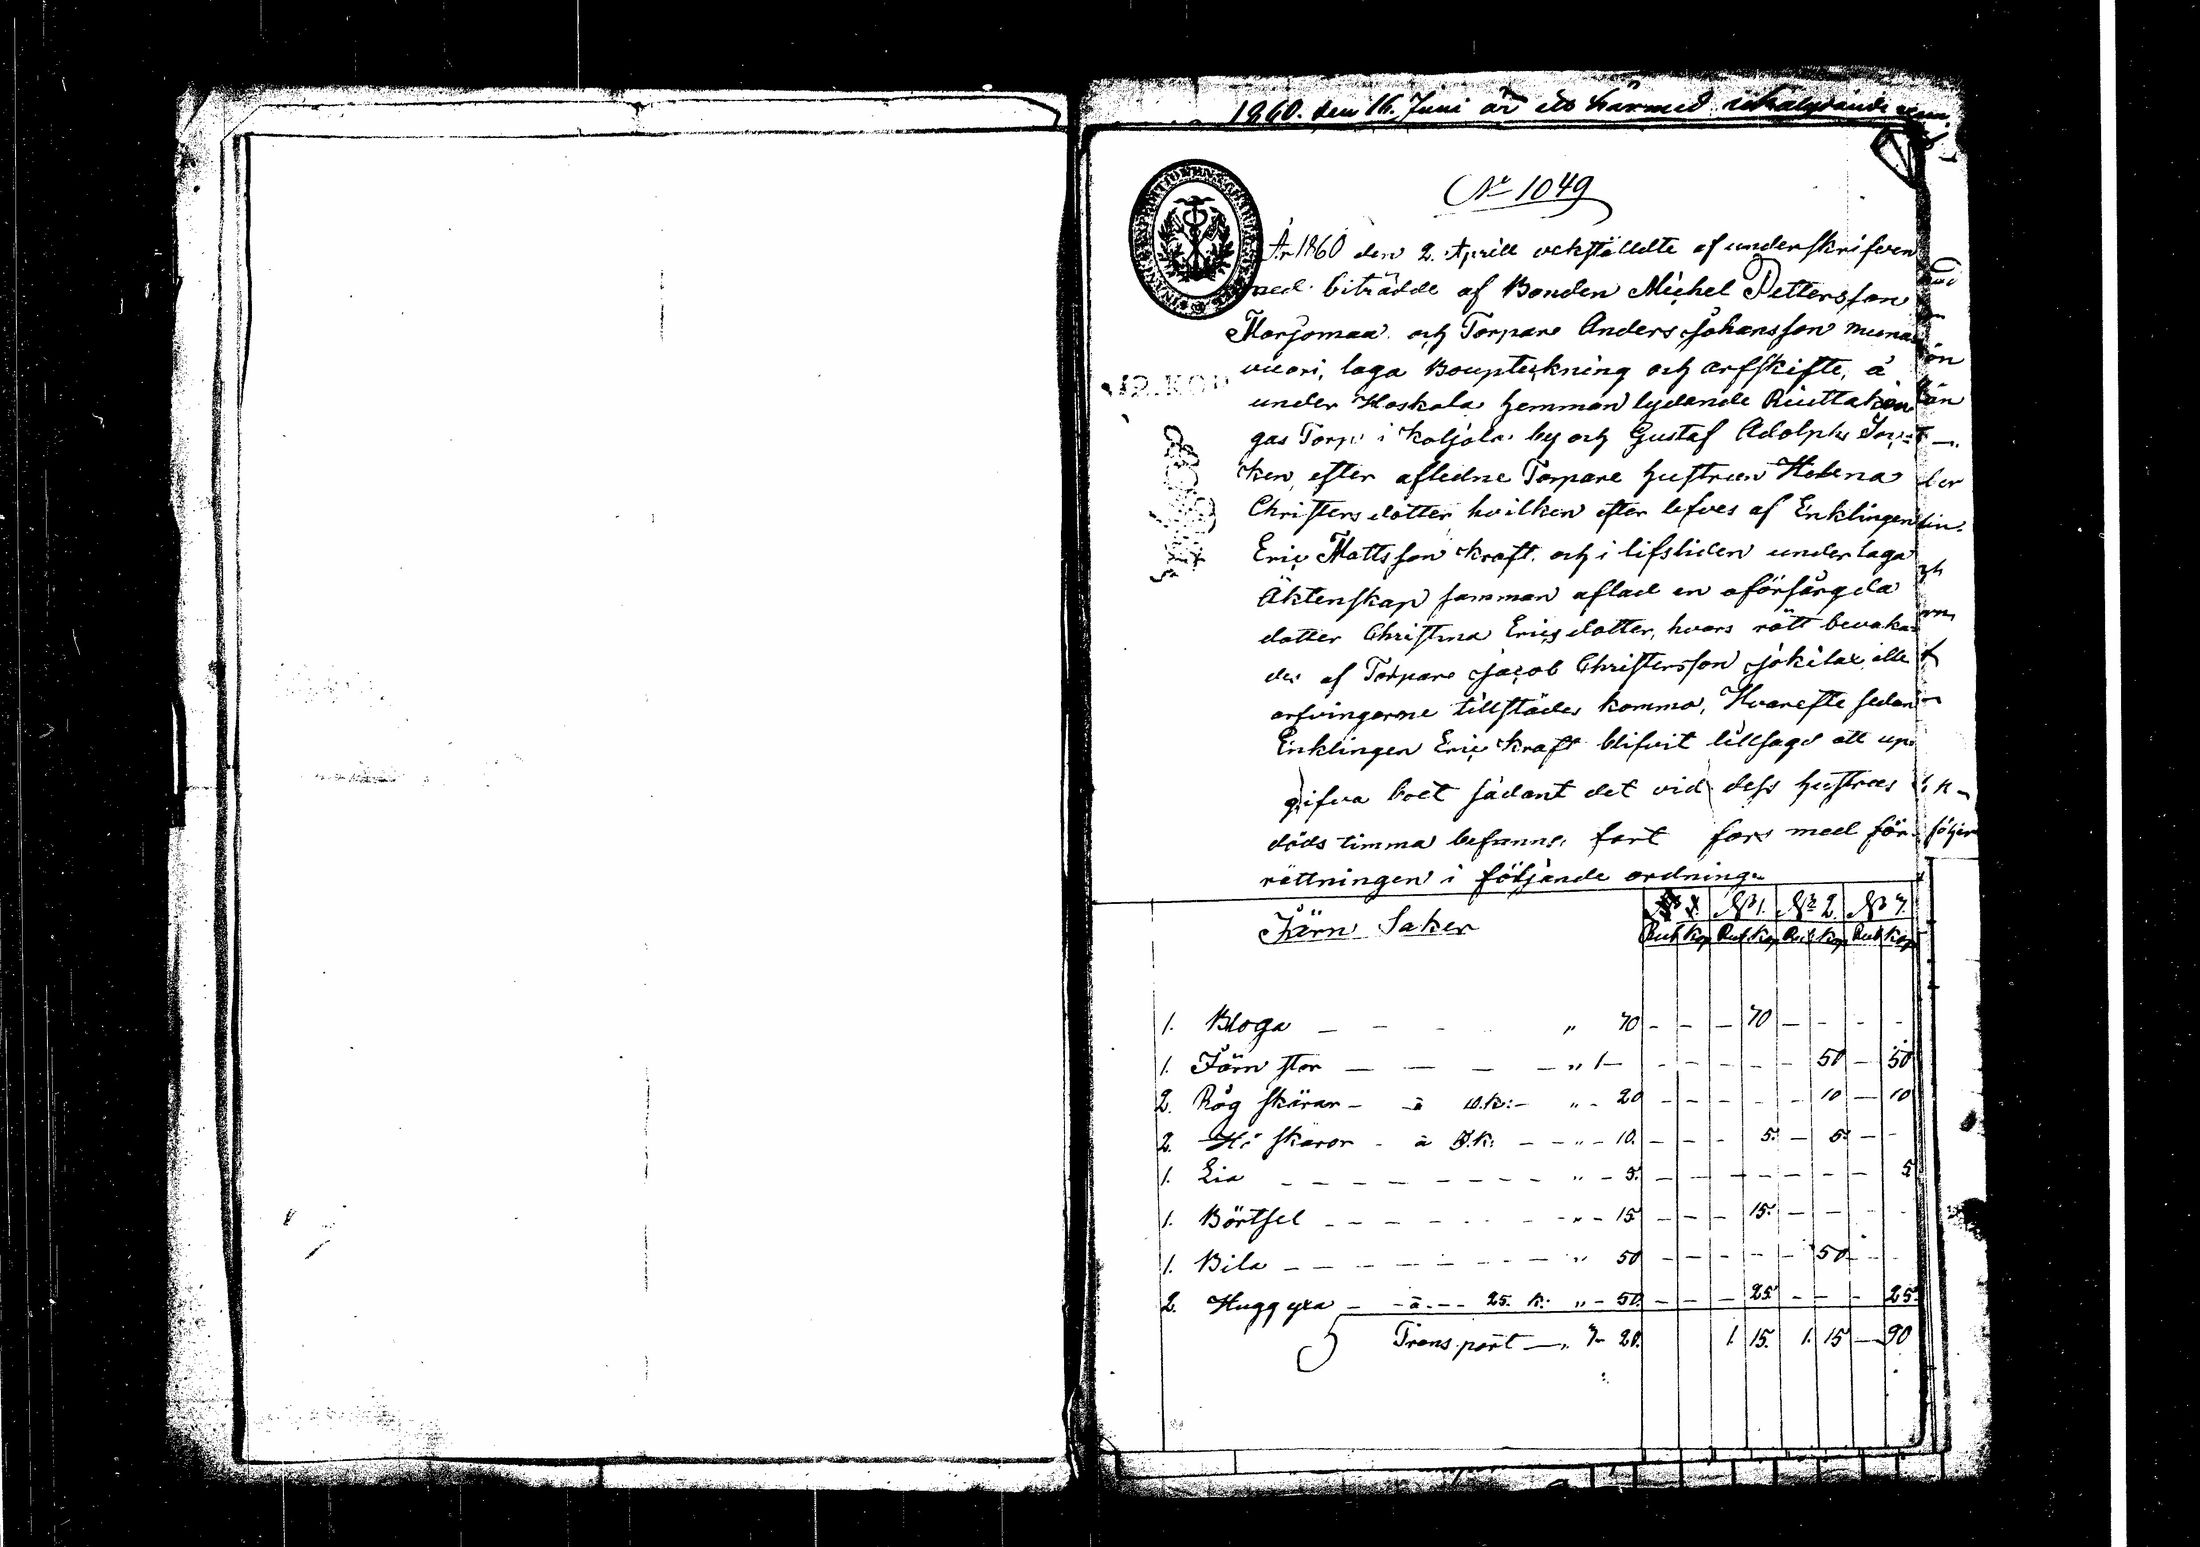 1860. den 16. Juni är ett härmed lika lydande
No 1049
År 1860 den 2. Aprill verkställdte af underskrifven
med biträdde af Bonden Michel Pettersson
Marjomaa och Torpare Anders Johansson Muna
vuori, laga Boupteckning och arfskifte, å
under Haskala hemman lydande Riuttakan
gas Torp i Koljola by och Gustaf Adolphs Soc=
ken, efter afledne Torpare hustrun Helena
Christersdotter, hvilken efter lefves af Enklingen
Eric Mattsson Kraft och i lifstiden under laga
Äktenskap samman aflad en oförsärgda
dotter Christina Ericsdotter, hvars rätt bevaka=
des af Torpare Jacob Christersson Jokilax, alle
arfvingarne tillstädes komma, Hvarefte sedan
Enklingen Eric Kraft blifvit tillsagd att up
gifva boet sådant det vid dess hustrus
döds timma befanns, fort fors med för
rättningen i följande ordning
Järn Saker No 1. No 2. No 3.
Rub Kop Rub Kop Rub Kop Rub Kop
1. Bloga — — — " 70 — — — 70 — — — —
1. Järn stor — — — — " 1 — — — — — — 50 — 50
2. Råg skäror — à 10.k: — " — 20 — — — — — 10 — 10
2. Hö skäror — à 5.k: — — " — 10. — — — 5. — 5. — —
1. Lia — — — — — — — — " — 5. — — — — — — — 5
1. Börtsel — — — — — — " — 15 — — — 15. — — — —
1. Bila — — — — — — — " 50 — — — — — 50 — —
2. Hugg yxa — à — — 25. k: " — 50. — — — 25 — — — 25.
Transport — " 3 20. 1 15. 1. 15 — 90